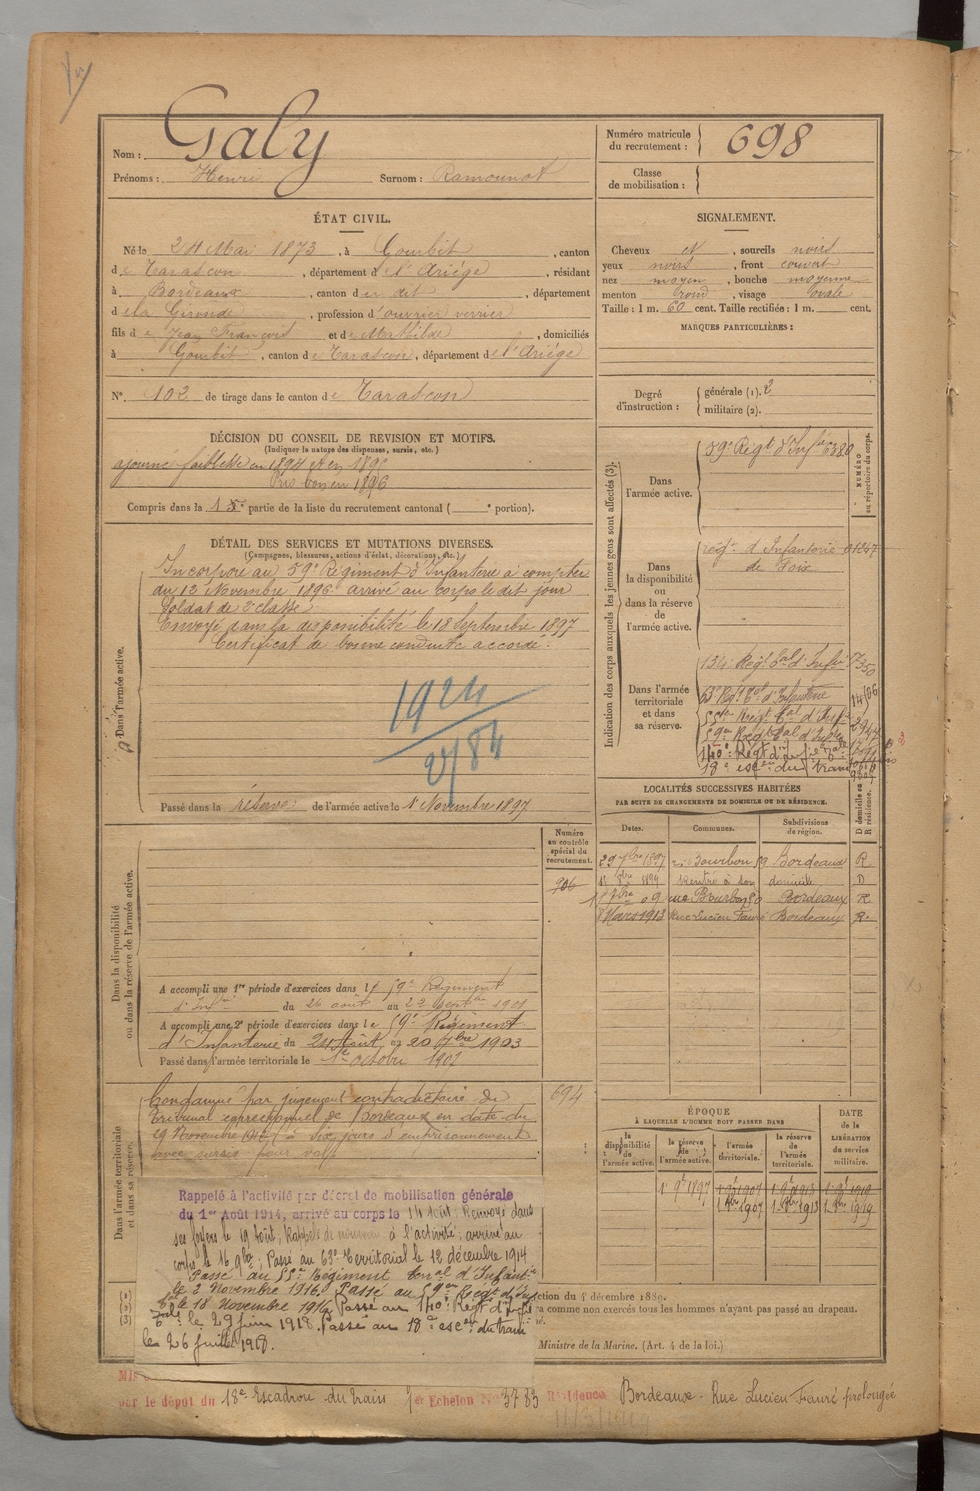 Nom : Galy
Prénoms : Henri Surnom : Ramounot
Numéro matricule du recrutement : 698
Classe de mobilisation :
ÉTAT CIVIL.
Né le 24 Mai 1873, à Gourbit, canton
de Tarascon, département de l'Ariége, résidant
à Bordeaux, canton de dit, département
de la Gironde, profession d'ouvrier verrier
fils de Jean François et de Mathilde, domiciliés
à Gourbit, canton de Tarascon, département de l'Ariége
N°. 102 de tirage dans le canton de Tarascon
SIGNALEMENT.
Cheveux et, sourcils noirs
yeux noirs, front couvert
nez moyen, bouche moyenne
menton rond, visage ovale
Taille : 1 m. 60 cent. Taille rectifiée : 1 m. cent.
MARQUES PARTICULIÈRES :
Degré d'instruction : générale (1). 2
militaire (2).
DÉCISION DU CONSEIL DE REVISION ET MOTIFS.
(Indiquer la nature des dispenses, sursis, etc.)
ajourné faiblesse en 1894 et en 1895
Pris bon en 1896
Compris dans la 1e partie de la liste du recrutement cantonal ( e portion).
DÉTAIL DES SERVICES ET MUTATIONS DIVERSES.
(Campagnes, blessures, actions d'éclat, décorations, etc.)
Dans l'armée active.
Incorporé au 59e Régiment d'Infanterie à compter
du 13 Novembre 1896 arrivé au corps le dit jour
Soldat de 2e classe
Envoyé dans la disponibilité le 18 Septembre 1897
Certificat de bonne conduite accordé.
1924
Passé dans la réserve de l'armée active le 1er Novembre 1897
Indication des corps auxquels les jeunes gens sont affectés (3).
NUMÉRO au répertoire du corps.
Dans l'armée active.
59e Régt d'Infie 6380
Dans la disponibilité ou dans la réserve de l'armée active.
régt. d'Infanterie 01247
de Foix
Dans l'armée territoriale et dans sa réserve.
134e Régt tal d'Infie 7350
63e Régt tal d'Infanterie
55e Régt tal d'Infie
59e Régt tal d'Infie
140e Régt d'Infie
18e escon du train
LOCALITÉS SUCCESSIVES HABITÉES
PAR SUITE DE CHANGEMENTS DE DOMICILE OU DE RÉSIDENCE.
Dates. Communes. Subdivisions de région. D domicile ou R résidence.
29 7bre 1897 r. Bourbon 59 Bordeaux R
Rentré à son domicile D
7bre 09 rue Bourbon Bordeaux R
8 Mars 1913 Rue Lucien Faure Bordeaux R.
Numéro au contrôle spécial du recrutement.
906
Dans la disponibilité ou dans la réserve de l'armée active.
A accompli une 1re période d'exercices dans le 59e Régiment
d'Infie du 26 août au 22 Septbre 1901
A accompli une 2e période d'exercices dans le 59e Régiment
d'Infanterie du 24 Août au 20 7bre 1903
Passé dans l'armée territoriale le 1er octobre 1907
Dans l'armée territoriale et dans sa réserve.
694
Condamné par jugement contradictoire du
Tribunal correctionnel de Bordeaux en date du
29 Novembre à dix jours d'emprisonnement
avec sursis pour vol
ÉPOQUE
À LAQUELLE L'HOMME DOIT PASSER DANS
la disponibilité de l'armée active. la réserve de l'armée active. l'armée territoriale. la réserve de l'armée territoriale. DATE de la LIBÉRATION du service militaire.
1 9bre 1897 1 9bre 1907 1 9bre 1913 1 9bre 1919
1 8bre 1907 1 8bre 1913 1 8bre 1919
Rappelé à l'activité par décret de mobilisation générale
du 1er Août 1914, arrivé au corps le 14 août; Renvoyé dans
ses foyers le 19 Août; Rappelé de nouveau à l'activité; arrivé au
corps le 16 9bre; Passé au 63e Territorial le 12 décembre 1914
Passé au 55e Régiment territal d'Infantie
le 2 Novembre 1916. Passé au 59e Régt d'Infie
tale le 18 Novembre 1916. Passé au 140e Régt d'Infie
tale le 29 juin 1918. Passé au 18e escon du train
le 26 Juillet 1918.
ction du 4 décembre 1889.
ra comme non exercés tous les hommes n'ayant pas passé au drapeau.
Ministre de la Marine. (Art. 4 de la loi.)
Mis
par le dépot du 18e Escadron du train 1er Echelon No 3783 Résidence Bordeaux - Rue Lucien Faure prolongée